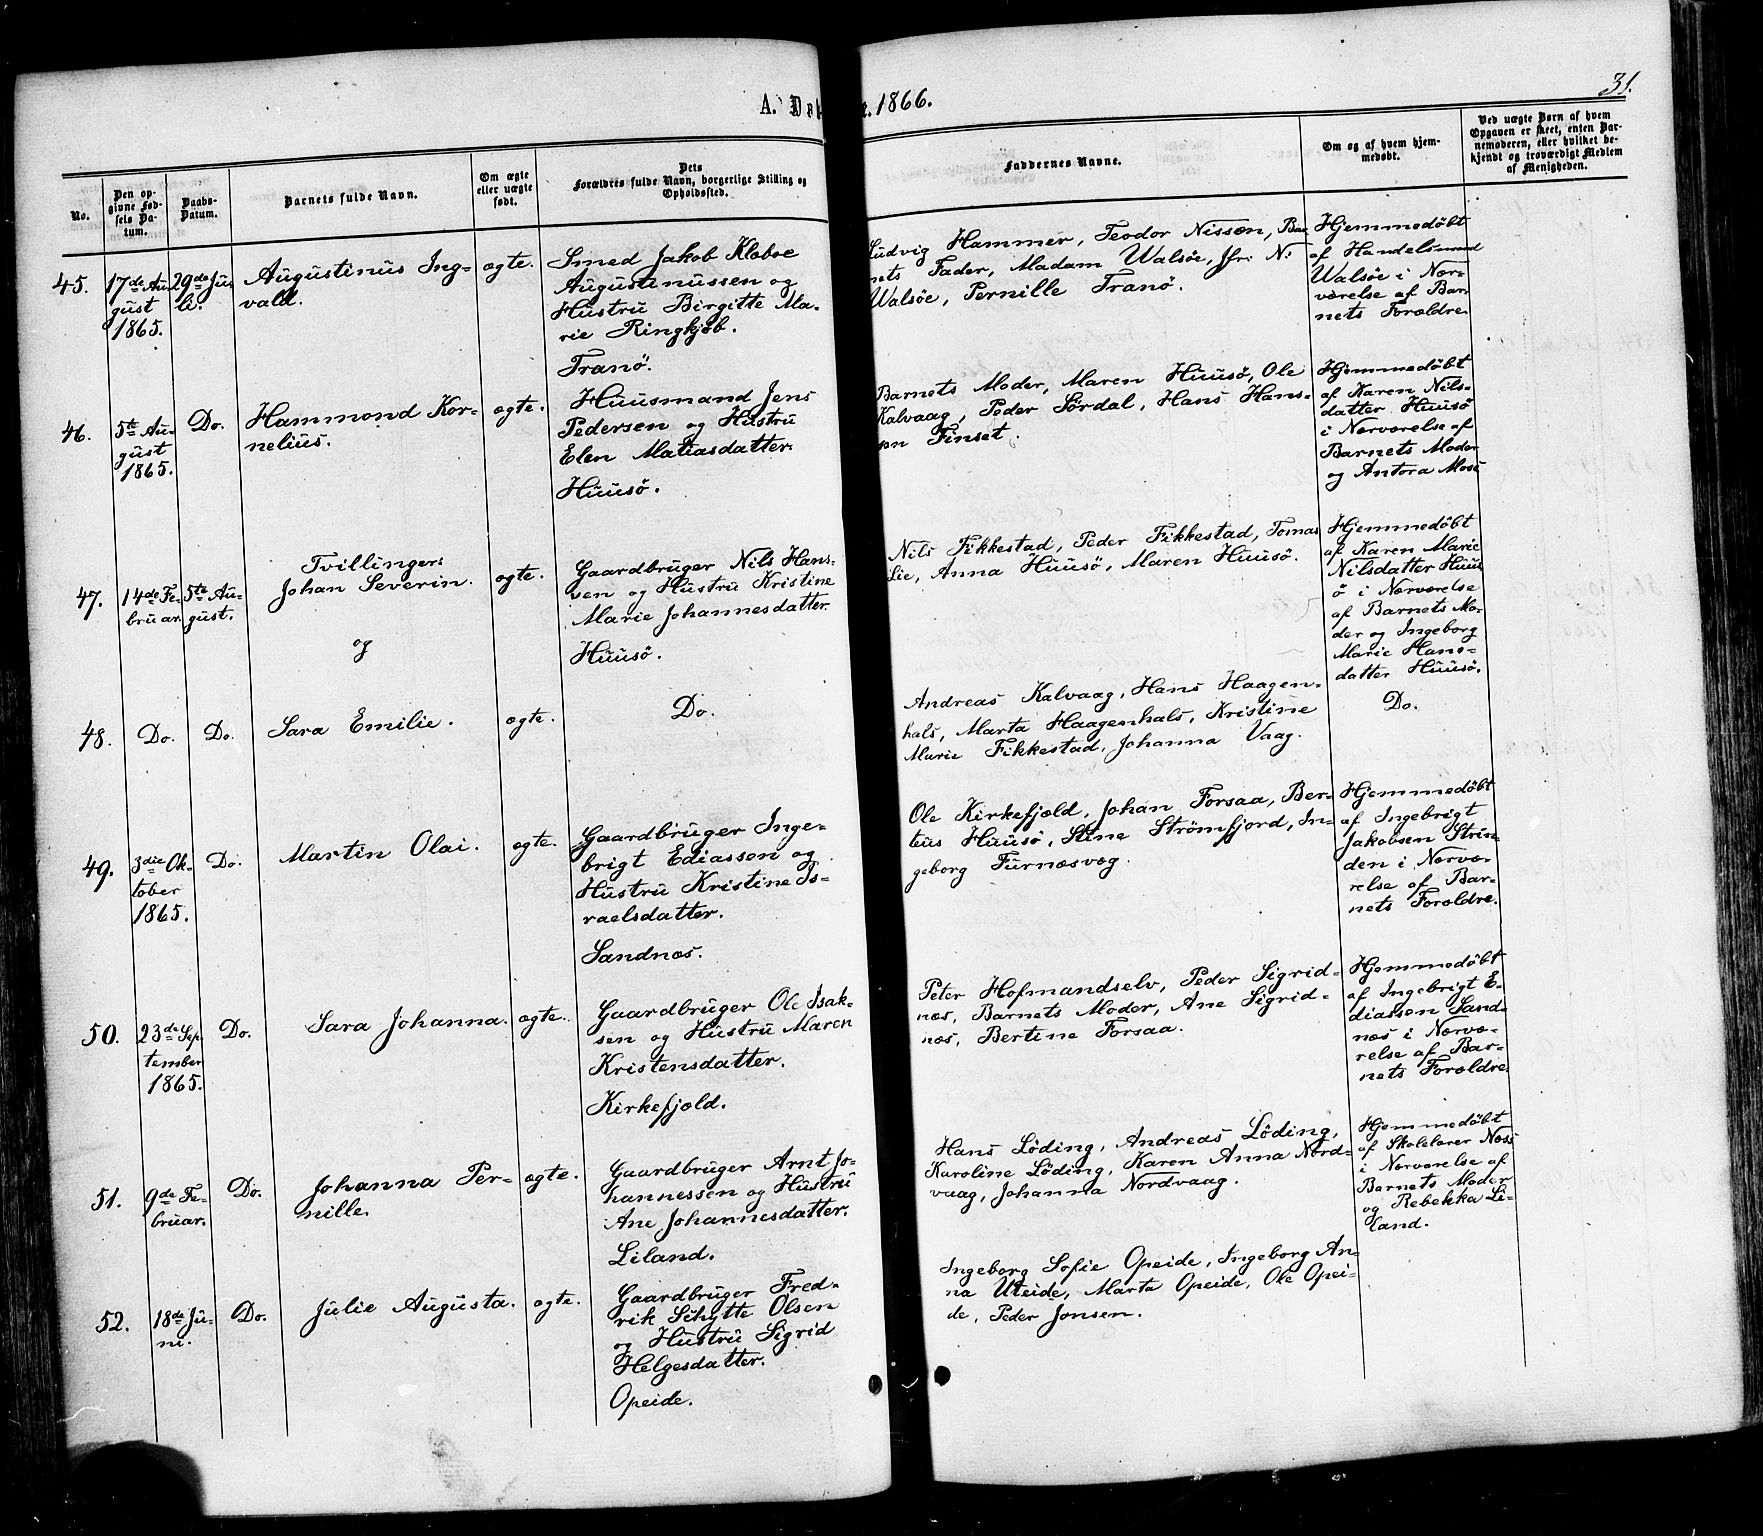 A. Dø
e. 1866.
31.
No.
Den op-
givne Fød-
sels Da-
tum.
Daabs-
Datum.
Barnets fulde Navn.
Om ægte
eller uægte
født.
Dets
Forældres fulde Navn, borgerlige Stilling og
Opholdssted.
Faddernes Navne.
Om og af hvem hjem-
medøbt.
Ved uægte Børn af hvem
Opgaven er skeet, enten Bar-
nemoderen, eller hvilket be-
kjendt og troværdigt Medlem
af Menigheden.
45.
17de Au-
gust
1865.
29de Ju-
li.
Augustinus Ing-
vald.
ægte.
Smed Jakob Klæboe
Augustinussen og
Hustru Birgitte Ma-
rie Ringkjøb.
Tranö.
Ludvig Hammer, Teodor Nissen, Bar-
nets Fader, Madam Walsöe, Jfr: N:
Walsöe, Pernille Tranö.
Hjemmedöbt
af Handelsmand
Walsöe i Nær-
værelse af Bar-
nets Forældre.
46.
5te Au-
gust
1865.
Do.
Hammond Kor-
nelius.
ægte.
Huusmand Jens
Pedersen og Hustru
Elen Matiasdatter.
Huusö.
Barnets Moder, Maren Huusö, Ole
Kalvaag, Peder Sördal, Hans Hans-
en Finset.
Hjemmedöbt
af Karen Nils-
datter Huusö
i Nærværelse af
Barnets Moder
og Antora Mosi
47.
14de Fe-
bruar.
5te Au-
gust.
Tvillinger:
Johan Severin.
og
ægte.
Gaardbruger Nils Hans-
ven og Hustru Kristine
Marie Johannesdatter.
Huusö.
Nils Fikkestad, Peder Fikkestad, Tomas
Lie, Anna Huusö, Maren Huusö.
Hjemmedöbt
af Karen Marie
Nilsdatter Huus
ö i Nærværelse
af Barnets Mo-
der og Ingeborg
Marie Hans-
datter Huusö.
48.
Do.
Do.
Sara Emilie.
ægte.
Do.
Andreas Kalvaag, Hans Haagen-
hals, Marta Haagenhals, Kristine
Marie Fikkestad, Johanna Vaag.
Do.
49.
3die Ok-
tober
1865.
Do.
Martin Olai.
ægte.
Gaardbruger Inge-
brigt Ediassen og
Hustru Kristine Is-
raelsdatter.
Sandnæs.
Ole Kirkefjæld, Johan Forsaa, Ber-
teus Huusö, Stine Strömfjord, In-
geborg Furnæsvæg.
Hjemmedöbt
af Ingebrigt
Jakobsen Strin-
den i Nærvæ-
relse af Bar-
nets Forældre.
50.
23de Sep-
tember
1865.
Do.
Sara Johanna.
ægte.
Gaardbruger Ole Isak-
sen og Hustru Maren
Kristensdatter.
Kirkefjæld.
Peter Hofmandselv, Peder Sigrid-
næs, Barnets Moder, Ane Sigrid-
næs, Bertine Forsaa.
Hjemmedöbt
af Ingebrigt E-
diassen Sand-
næs i Nærvæ-
relse af Bar-
nets Forældre.
51.
9de Fe-
bruar.
Do.
Johanna Per-
nille.
ægte.
Gaardbruger Arnt Jo-
hannessen og Hustru
Ane Johannesdatter.
Liland.
Hans Löding, Andreas Löding,
Karoline Löding, Karen Anna Nord-
vaag, Johanna Nordvaag.
Hjemmedöbt
af Skolelærer Næss
i Nærværelse af
Barnets Moder
og Rebekka Li-
land.
52.
18de Ju-
ni.
Do.
Julie Augusta.
ægte.
Gaardbruger Fred-
rik Schytte Olsen
og Hustru Sigrid
Helgesdatter.
Opeide.
Ingeborg Sofie Opeide, Ingeborg An-
na Uteide, Marta Opeide, Ole Opei-
de, Peder Jonsen.